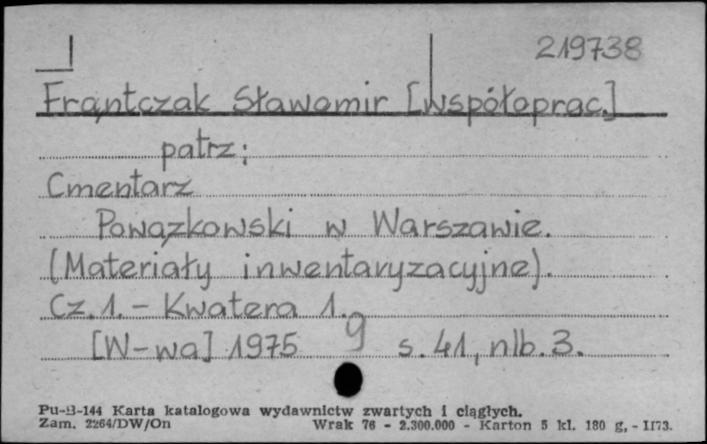 219738
Frątczak Sławomir [współoprac.]
patrz:
Cmentarz
Powązkowski w Warszawie.
(Materiały inwentaryzacyjne).
Cz. 1. - Kwatera 1.
[W-wa] 1975 g s. 41, nlb. 3.
Pu-B-144 Karta katalogowa wydawnictw zwartych i ciągłych.
Zam. 2264/DW/On Wrak 76 - 2.300.000 - Karton 5 kl. 180 g, - II73.